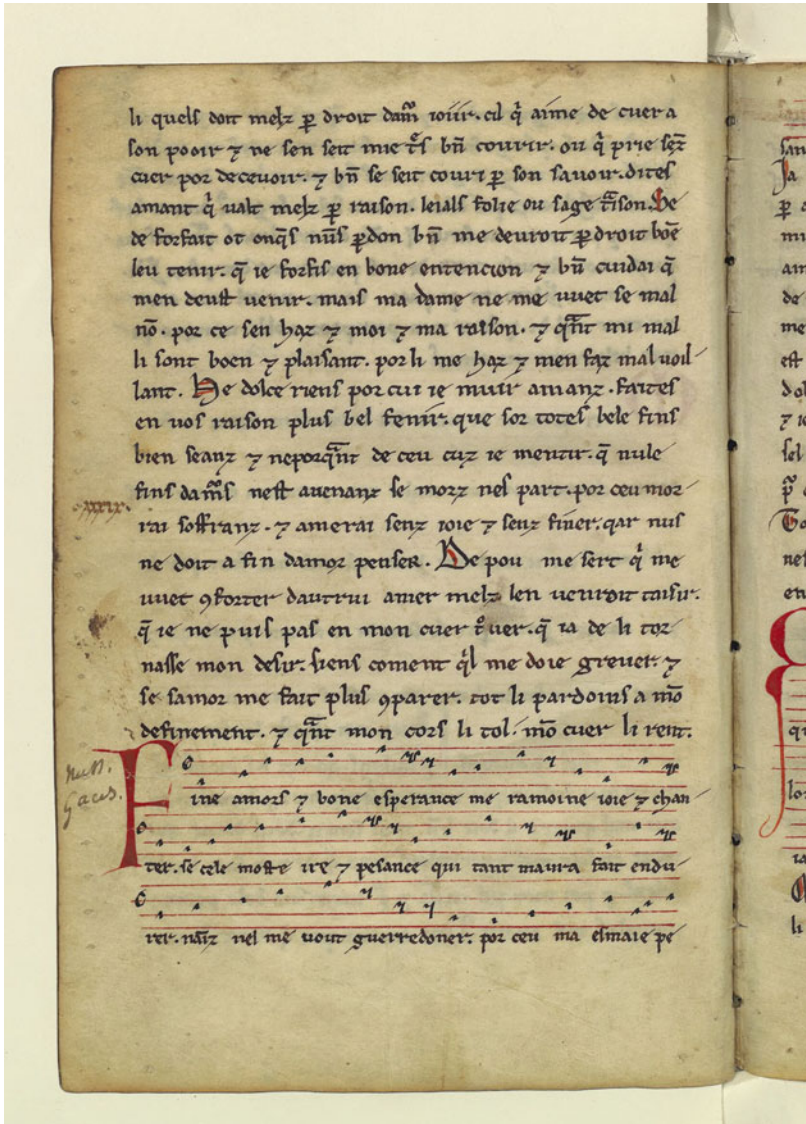 li quels doit melz ꝑ droit dam̃ ioiir. cil q̇ aime de cuer a
son pooir ⁊ ne sen seit mie t̾s bñ couurir. ou q̇ prie senz
cuer por decevoir. ⁊ bñ se seit couri ꝑ son sauoir. dites
amant q̇ valt melz ꝑ raison. leials folie ou sage t̃ison. De
de forfait ot onq̃s nũs ꝑdon bñ me deuroit ꝑ droit boẽ
leu tenir. q̃ ie forfis en bone entencion ⁊ bñ cuidai q̃
men deust uenir. mais ma dame ne me uuet se mal
nõ. por ce sen haz ⁊ moi ⁊ ma raison. ⁊ qñt mi mal
li sont boen ⁊ plaisant. por li me haz ⁊ men faz mal uoil
lant. He dolce riens por cui ie muir amanz. faites
en uos raison plus bel fenir. que sor totes bele fins
bien seanz ⁊ neporqñt de ceu cuz ie mentir. q̃ nule
fins dam̃s nest auenanz se morz nel part. por ceu mor
xxxix.
rai soffranz. ⁊ amerai senz ioie ⁊ senz finer. qar nus
ne doit a fin damor penser. De pou me sert q̇ me
uuet ꝯforter dautrui amer melz len uenroit taisir.
q̃ ie ne puis pas en mon cuer t̾uer. q̃ ia de li tor
nasse mon desir. siens coment q̇l me doie greuer. ⁊
se samor me fait plus ꝯparer. tot li pardoins a mõ
definement. ⁊ qñt mon cors li tol. mõ cuer li rent.
Gaces.
Fine amors ⁊ bone esperance me ramoine ioie ⁊ chan
ter. se cele mostre ire ⁊ pesance qui tant maura fait endu
rer. nel me uout guerredoner. por ceu ma esmaie pe